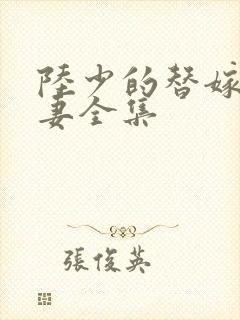 陸少的替嫁
妻全集
張俊英